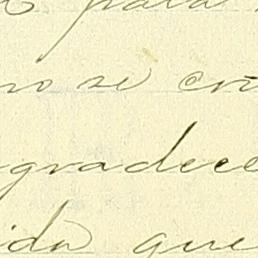 para
no se cri
gradece
ida que